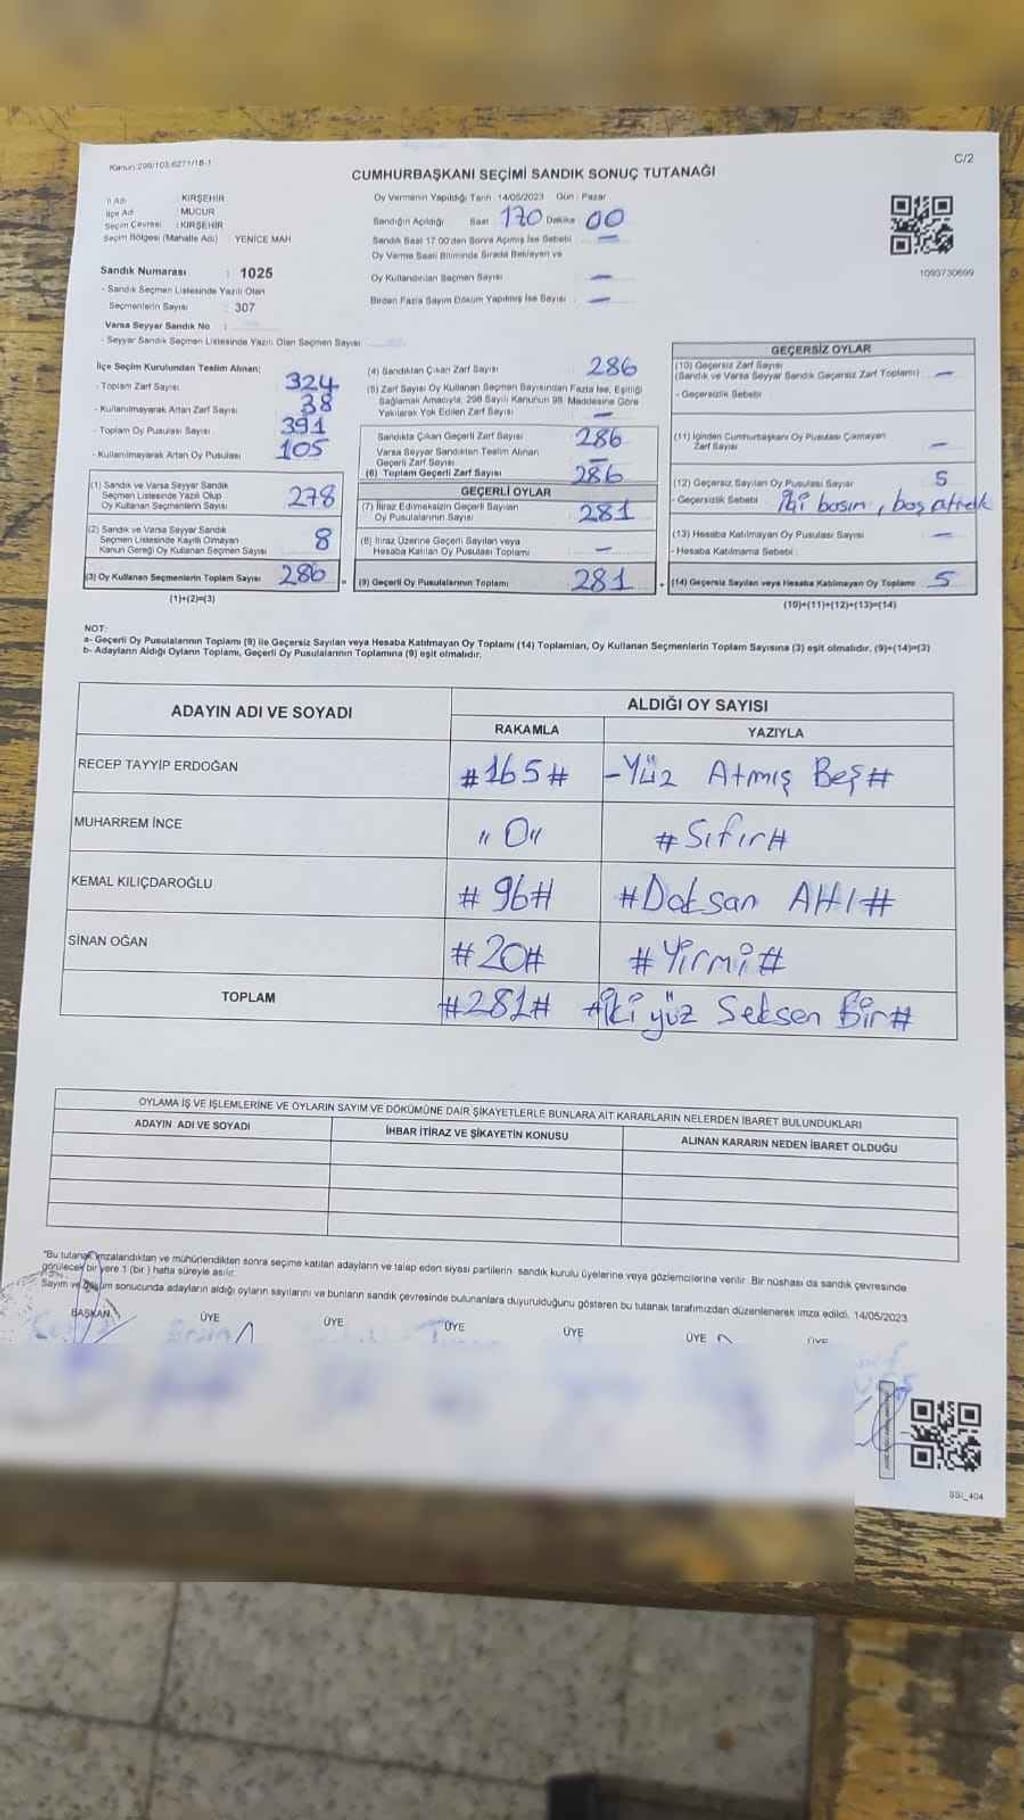 Kanun:298/103,6271/18-1
C/2
CUMHURBAŞKANI SEÇİMİ SANDIK SONUÇ TUTANAĞI
İl Adı : KIRŞEHİR
İlçe Adı : MUCUR
Seçim Çevresi : KIRŞEHİR
Seçim Bölgesi (Mahalle Adı) : YENİCE MAH
Sandık Numarası : 1025
- Sandık Seçmen Listesinde Yazılı Olan
Seçmenlerin Sayısı : 307
Varsa Seyyar Sandık No :
- Seyyar Sandık Seçmen Listesinde Yazılı Olan Seçmen Sayısı
Oy Vermenin Yapıldığı Tarih 14/05/2023 Gün : Pazar
Sandığın Açıldığı Saat 170 Dakika 00
Sandık Saat 17.00'den Sonra Açılmış İse Sebebi —
Oy Verme Saati Bitiminde Sırada Bekleyen ve
Oy Kullandırılan Seçmen Sayısı —
Birden Fazla Sayım Döküm Yapılmış İse Sayısı —
1090730699
İlçe Seçim Kurulundan Teslim Alınan;
- Toplam Zarf Sayısı 324
- Kullanılmayarak Artan Zarf Sayısı 38
- Toplam Oy Pusulası Sayısı 391
- Kullanılmayarak Artan Oy Pusulası 105
(1) Sandık ve Varsa Seyyar Sandık
Seçmen Listesinde Yazılı Olup
Oy Kullanan Seçmenlerin Sayısı 278
(2) Sandık ve Varsa Seyyar Sandık
Seçmen Listesinde Kayıtlı Olmayan
Kanun Gereği Oy Kullanan Seçmen Sayısı 8
(3) Oy Kullanan Seçmenlerin Toplam Sayısı 286
(1)+(2)=(3)
=
(4) Sandıktan Çıkan Zarf Sayısı 286
(5) Zarf Sayısı Oy Kullanan Seçmen Sayısından Fazla İse, Eşitliği
Sağlamak Amacıyla, 298 Sayılı Kanunun 98. Maddesine Göre
Yakılarak Yok Edilen Zarf Sayısı —
Sandıkta Çıkan Geçerli Zarf Sayısı 286
Varsa Seyyar Sandıktan Teslim Alınan
Geçerli Zarf Sayısı —
(6) Toplam Geçerli Zarf Sayısı 286
GEÇERLİ OYLAR
(7) İtiraz Edilmeksizin Geçerli Sayılan
Oy Pusulalarının Sayısı 281
(8) İtiraz Üzerine Geçerli Sayılan veya
Hesaba Katılan Oy Pusulası Toplamı —
(9) Geçerli Oy Pusulalarının Toplamı 281
+
GEÇERSİZ OYLAR
(10) Geçersiz Zarf Sayısı
(Sandık ve Varsa Seyyar Sandık Geçersiz Zarf Toplamı) —
- Geçersizlik Sebebi
(11) İçinden Cumhurbaşkanı Oy Pusulası Çıkmayan
Zarf Sayısı —
(12) Geçersiz Sayılan Oy Pusulası Sayısı 5
- Geçersizlik Sebebi İki basım, boş atmak
(13) Hesaba Katılmayan Oy Pusulası Sayısı —
- Hesaba Katılmama Sebebi
(14) Geçersiz Sayılan veya Hesaba Katılmayan Oy Toplamı 5
(10)+(11)+(12)+(13)=(14)
NOT:
a- Geçerli Oy Pusulalarının Toplamı (9) ile Geçersiz Sayılan veya Hesaba Katılmayan Oy Toplamı (14) Toplamları, Oy Kullanan Seçmenlerin Toplam Sayısına (3) eşit olmalıdır. (9)+(14)=(3)
b- Adayların Aldığı Oyların Toplamı, Geçerli Oy Pusulalarının Toplamına (9) eşit olmalıdır.
ADAYIN ADI VE SOYADI
ALDIĞI OY SAYISI
RAKAMLA YAZIYLA
RECEP TAYYİP ERDOĞAN #165# -Yüz Atmış Beş#
MUHARREM İNCE "0" #Sıfır#
KEMAL KILIÇDAROĞLU #96# #Doksan Altı#
SİNAN OĞAN #20# #Yirmi#
TOPLAM #281# #İki yüz Seksen Bir#
OYLAMA İŞ VE İŞLEMLERİNE VE OYLARIN SAYIM VE DÖKÜMÜNE DAİR ŞİKAYETLERLE BUNLARA AİT KARARLARIN NELERDEN İBARET BULUNDUKLARI
ADAYIN ADI VE SOYADI İHBAR İTİRAZ VE ŞİKAYETİN KONUSU ALINAN KARARIN NEDEN İBARET OLDUĞU
"Bu tutanak imzalandıktan ve mühürlendikten sonra seçime katılan adayların ve talep eden siyasi partilerin sandık kurulu üyelerine veya gözlemcilerine verilir. Bir nüshası da sandık çevresinde
görülecek bir yere 1 (bir) hafta süreyle asılır.
Sayım ve döküm sonucunda adayların aldığı oyların sayılarını ve bunların sandık çevresinde bulunanlara duyurulduğunu gösteren bu tutanak tarafımızdan düzenlenerek imza edildi. 14/05/2023
BAŞKAN ÜYE ÜYE ÜYE ÜYE ÜYE ÜYE
SSI_404